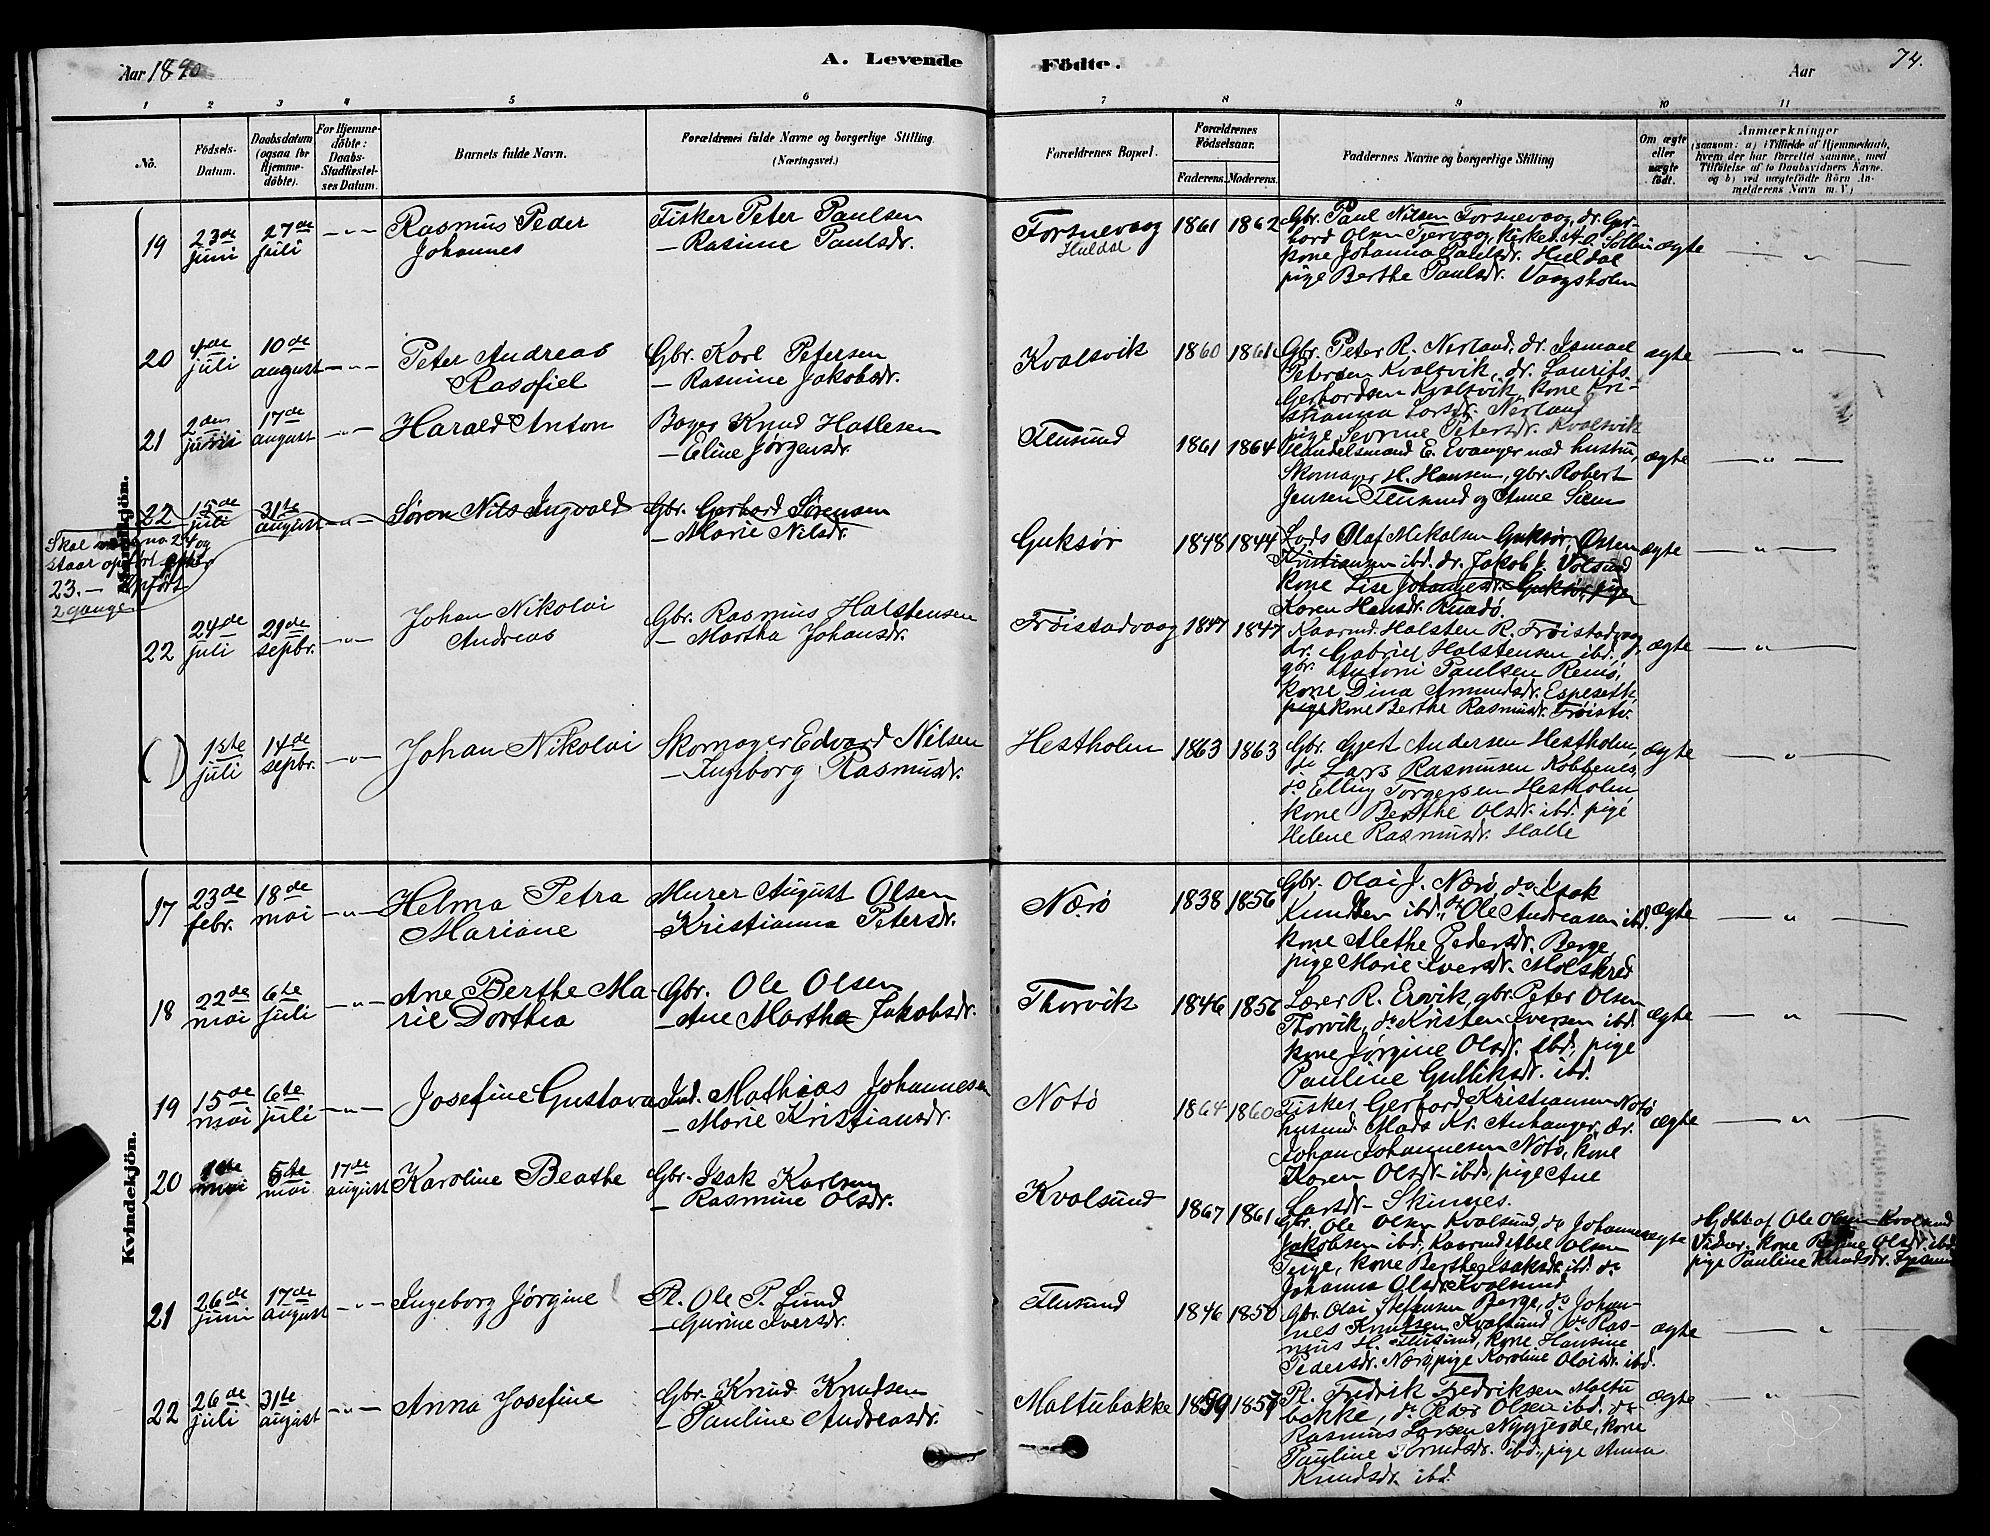 Aar 1890
A. Levende
Födte.
Aar
74.
1 2 3 4 5 6 7 8 9 10 11
No.
Födsels-
Datum.
Daabsdatum
(ogsaa for
Hjemme-
döbte).
For Hjemme-
döbte:
Daabs-
Stadfæstel-
ses Datum.
Barnets fulde Navn.
Forældrenes fulde Navne og borgerlige Stilling
(Næringsvei.)
Forældrenes Bopæl.
Forældrenes
Födselsaar.
Faderens. Moderens.
Faddernes Navne og borgerlige Stilling
Om ægte
eller
uægte
født.
Anmærkninger
(saasom: a) i Tilfælde af Hjemmedaab,
hvem der har forrettet samme, med
Tilföielse af to Daabsvidners Navne.
og b) ved uægtefödte Börn An-
melderens Navn m. V.)
Mandkjön.
19
23de
juni
27de
juli
Rasmus Peder
Johannes
Fisker Peter Paulsen
– Rasine Paulsdr.
Forsnevaag
Huldal
1861 1862
Gbr. Paul Nilsen Forsnevaag, dr. Ger-
hard Olsen Tjervaag, kirkes. A. O. Sollie
kone Johanna Paulsdr. Huldal
pige Berthe Paulsdr. Vaagsholm
ægte
20
4de
juli
10de
august
Peter Andreas
Rasofiel
Gbr. Karl Petersen
– Rasmine Jakobsdr.
Kvalsvik
1860 1861
Gbr. Peter R. Nerland, dr. Ismael
Petersen Kvalsvik, dr. Laurits
Gerhardsen Kvalsvik, kone Kri-
stianna Larsdr. Nerland
pige Sevrine Petersdr. Kvalsvik
ægte
21
2den
juni
17de
august
Harald Anton
Bager Knud Hatlesen
– Eline Jørgensdr.
Flusund
1861 1864
Handelsmand E. Evanger med hustru,
Skomager H. Hansen, gbr. Robert
Jensen Flusund og Anne Siem
ægte
22
15de
juli
31te
august
Søren Nils Ingvald
Gbr. Gerhard Sørensen
– Marie Nilsdr.
Guksør
1848 1844
Lods Olaf Mikalsen Guksør, Osten
Kristiansen ibd. dr. Jakob J. Volsund
kone Lise Johannesdr. Guksør, pige
Karen Hansdr. Rundø
ægte
Skal no 24 og
staar opført efter
23. – Opført
2 gange
22
24de
juli
21de
sepbr.
Johan Nikolai
Andreas
Gbr. Rasmus Halstensen
– Martha Johansdr.
Frøistadvaag
1847 1847
Kaarmd. Halsten R. Frøistadvaag
dr. Gabriel Halstensen ibd.,
gbr. Antoni Paulsen Remø,
kone Dina Amundsdr. Espeseth
pige kone Berthe Rasmusdr. Frøistv.
ægte
( )
1ste
juli
14de
sepbr.
Johan Nikolai
Skomager Edvard Nilsen
– Ingeborg Rasmusdr.
Hestholm
1863 1863
Gbr. Gjert Andersen Hestholm
do Lars Rasmusen Kobbenes,
do Elling Torgersen Hestholm
kone Berthe Olsdr. ibd. pige
Helene Rasmusdr. Halle
ægte
Kvindekjön.
17
23de
febr.
18de
mai
Helma Petra
Mariane
Murer August Olsen
– Kristianna Petersdr.
Nærø
1838 1856
Gbr. Olai J. Nærø, do Isak
Knudsen ibd., do Ole Andreasen ibd.
kone Alethe Pedersdr. Berge,
pige Marie Iversdr. Molskred
ægte
18
22de
mai
6te
juli
Ane Berthe Ma-
rie Dorthea
Gbr. Ole Olsen
– Ane Martha Jakobsdr.
Thorvik
1846 1856
Lærer R. Ervik, gbr. Peter Olsen
Thorvik, do Kristen Iversen ibd.
kone Jørgine Olsdr. ibd., pige
Pauline Gulliksdr. ibd.
ægte
19
15de
mai
6te
juli
Josefine Gustava
Ind. Mathias Johannesen
– Marie Kristiansdr.
Notø
1864 1860
Fisker Gerhard Kristiansen Notø
husmd. Mads Kr. Anhanger, dr.
Johan Johannesen Notø, kone
Karen Olsdr. ibd., pige Ane
Larsdr. Skinnes.
ægte
20
1ste
mai
5te
mai
17de
august
Karoline Beathe
Gbr. Isak Karlsen
– Rasmine Olsdr.
Kvalsund
1867 1861
Gbr. Ole Olsen Kvalsund, do Johannes
Jakobsen ibd., Kaarmd Abel Olsen
Teige, kone Berthe Isaksdr. ibd. do
Johanna Olsdr. Kvalsund
ægte
Hjdbt. af Ole Olsen Kvalsund
Vidner: kone Rasine Olsdr. ibd.
pige Pauline Knudsdr.
21
26de
juni
17de
august
Ingeborg Jørgine
Pl. Ole P. Lund
– Gurine Iversdr.
Flusund
1846 1850
Gbr. Olai Steffensen Berge, do Johan-
nes Knutsen Kvalsund do Ras-
mus H. Flusund, kone Hansine
Pedersdr. Nærø, pige Karoline Olaisdr. ibd.
ægte
22
26de
juli
31te
august
Anna Josefine
Gbr. Knud Knudsen
– Pauline Andreasdr.
Maltubakke
1859 1857
Pl. Fredrik Fredriksen Maltu
bakke, do Peder Olsen ibd. do
Rasmus Larsen Nygjerde, kone
Pauline Knudsdr. ibd., pige Anna
Knudsdr. ibd.
ægte